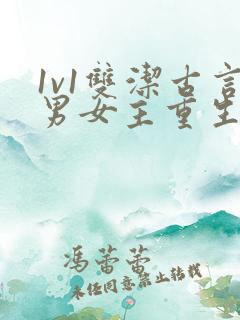 1v1雙潔古言
男女主重生
馮蕾蕾
未經同意禁止轉載